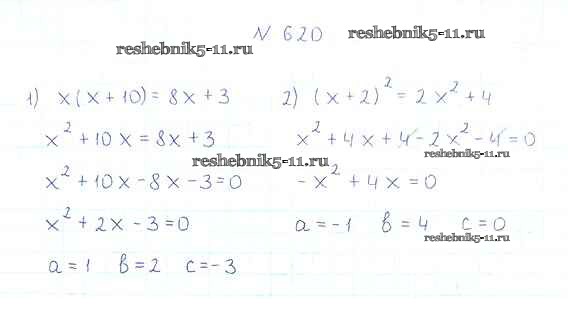 N 620
reshebnik5-11.ru reshebnik5-11.ru
1) x(x+10)=8x+3
x²+10x=8x+3
reshebnik5-11.ru
x²+10x-8x-3=0
x²+2x-3=0
a=1 b=2 c=-3
2) (x+2)²=2x²+4
x²+4x+4-2x²-4=0
reshebnik5-11.ru
-x²+4x=0
a=-1 b=4 c=0
reshebnik5-11.ru